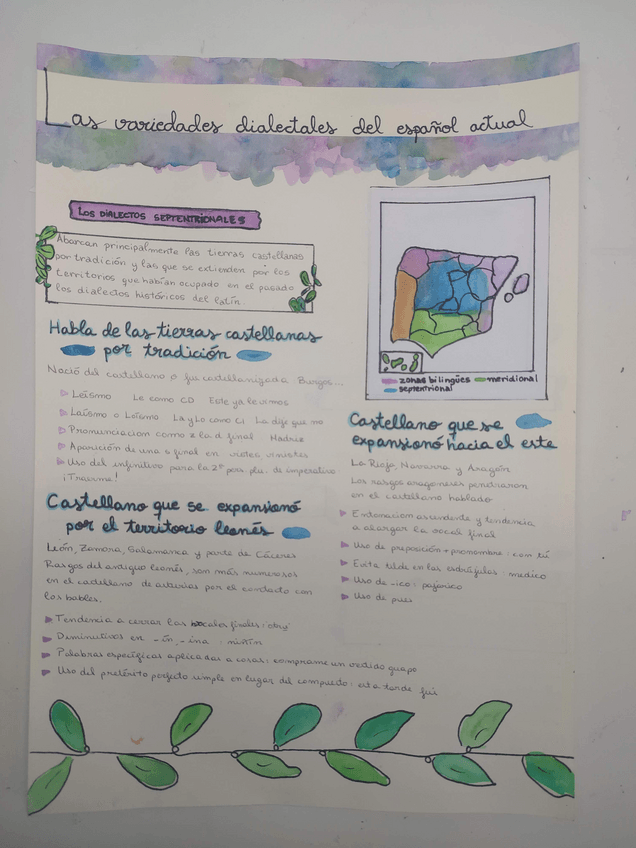 Las variedades dialectales del español actual
LOS DIALECTOS SEPTENTRIONALES
Abarcan principalmente las tierras castellanas
por tradición y las que se extienden por los
territorios que habían ocupado en el pasado
los dialectos históricos del latín.
zonas bilingües meridional
septentrional
Habla de las tierras castellanas
por tradición
Nació del castellano o fue castellanizada Burgos...
Leísmo Le como CD Este ya le vimos
Laísmo o Loísmo La y Lo como CI La dije que no
Pronunciación como z la d final Madriz
Aparición de una s final en vistes vinistes
Uso del infinitivo para la 2ª pers. plu. de imperativo
¡Traerme!
Castellano que se expansionó
por el territorio leonés
León, Zamora, Salamanca y parte de Cáceres
Rasgos del antiguo leonés, son más numerosos
en el castellano de asturias por el contacto con
los bables.
Tendencia a cerrar las vocales finales: otru
Diminutivos en -ín, -ina: niñín
Palabras específicas aplicadas a cosas: comprame un vestido guapo
Uso del pretérito perfecto simple en lugar del compuesto: esta tarde fui
Castellano que se
expansionó hacia el este
La Rioja, Navarra y Aragón
Los rasgos aragoneses penetraron
en el castellano hablado
Entonación ascendente y tendencia
a alargar la vocal final
Uso de preposición + pronombre: con tú
Evita tilde en las esdrújulas: medico
Uso de -ico: pajarico
Uso de pues